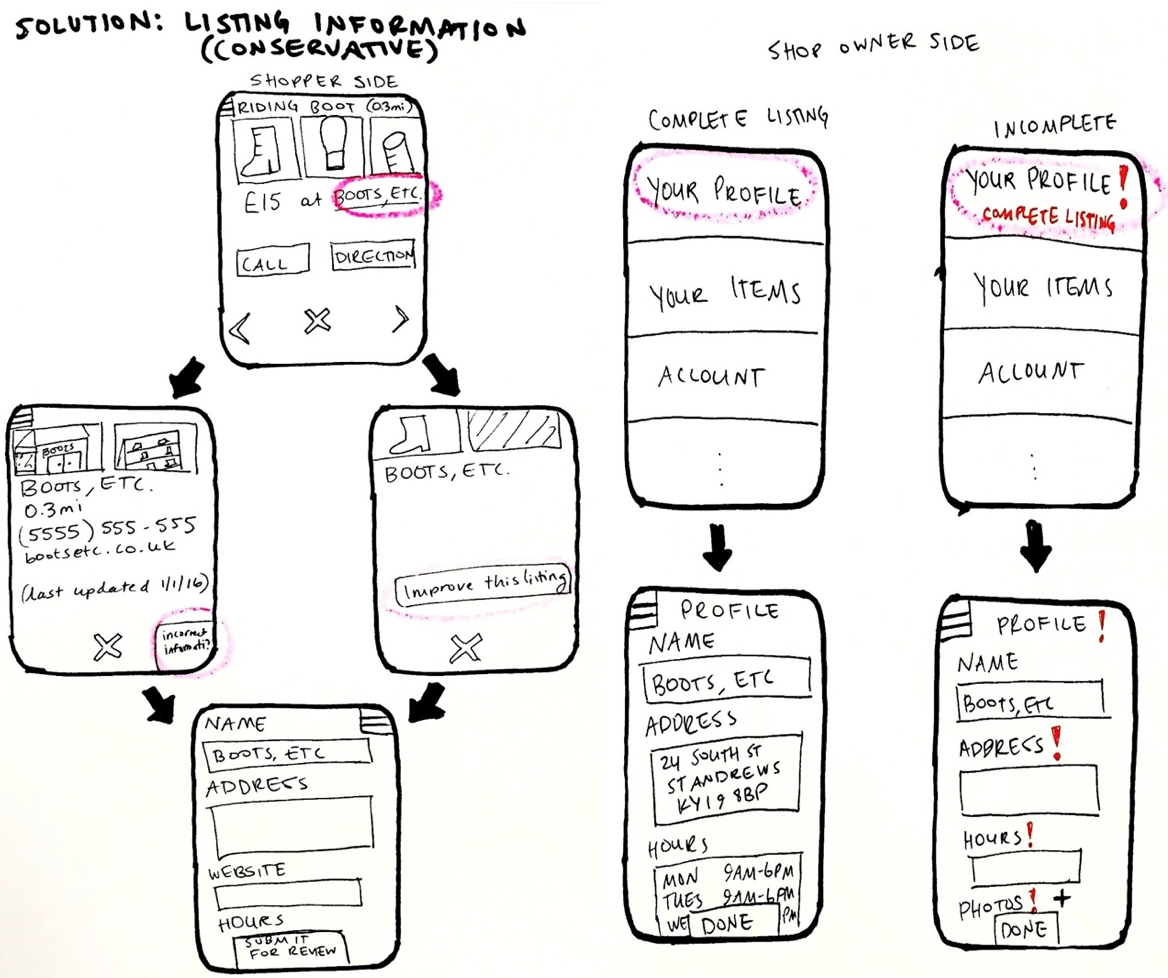 SOLUTION: LISTING INFORMATION
(CONSERVATIVE)
SHOPPER SIDE
RIDING BOOT (0.3mi)
£15 at BOOTS, ETC.
CALL
DIRECTION
BOOTS
BOOTS, ETC.
0.3mi
(5555) 555-555
bootsetc.co.uk
(last updated 1/1/16)
incorrect
informati?
BOOTS, ETC.
Improve this listing
NAME
BOOTS, ETC
ADDRESS
WEBSITE
HOURS
SUBMIT
FOR REVIEW
SHOP OWNER SIDE
COMPLETE LISTING
YOUR PROFILE
YOUR ITEMS
ACCOUNT
PROFILE
NAME
BOOTS, ETC
ADDRESS
24 SOUTH ST
ST ANDREWS
KY19 8BP
HOURS
MON 9AM-6PM
TUES 9AM-6PM
WE PM
DONE
INCOMPLETE
YOUR PROFILE!
COMPLETE LISTING
YOUR ITEMS
ACCOUNT
PROFILE!
NAME
BOOTS, ETC
ADDRESS!
HOURS!
PHOTOS! +
DONE